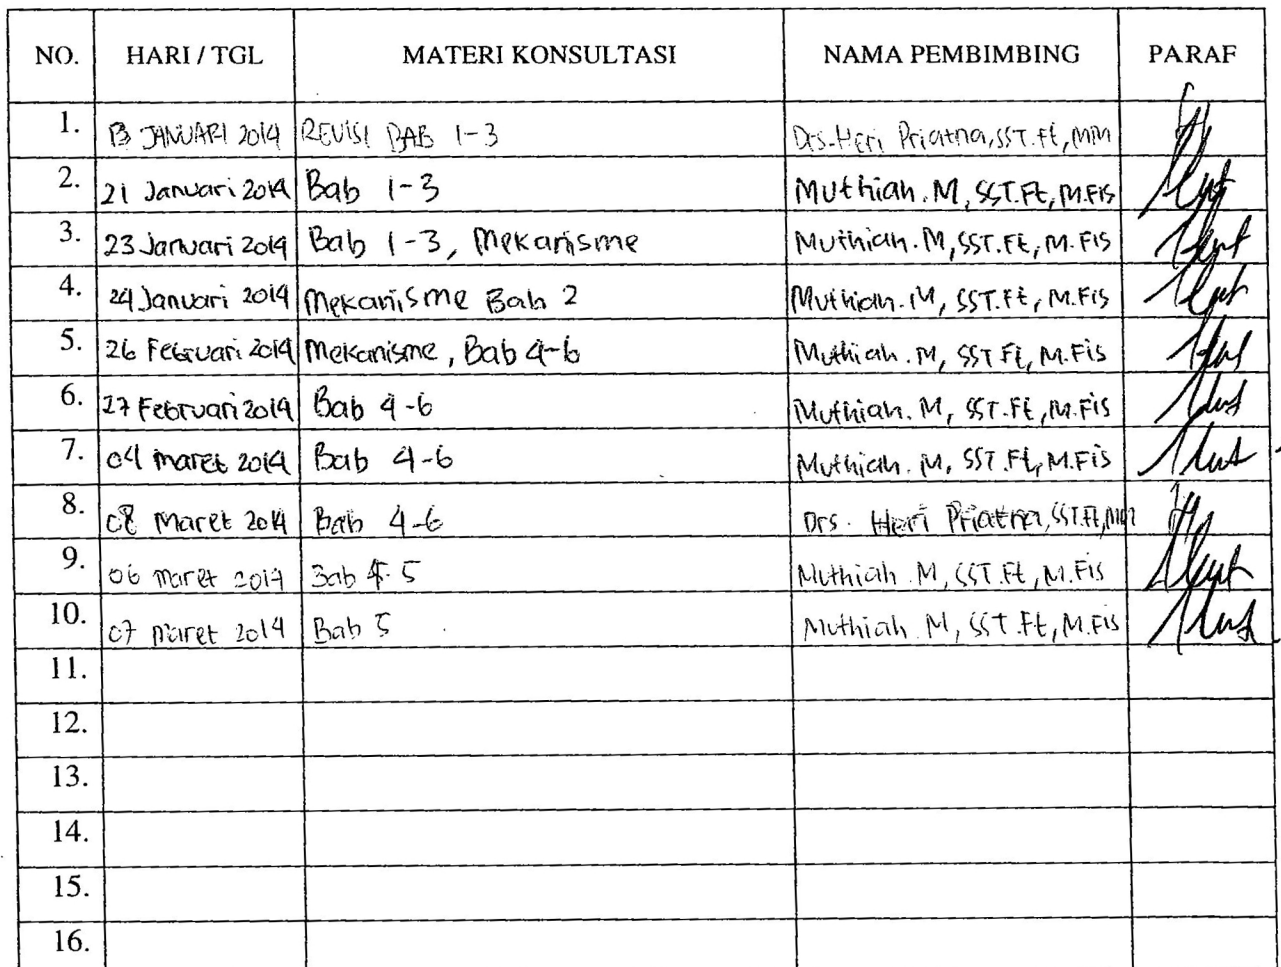 NO. HARI / TGL MATERI KONSULTASI NAMA PEMBIMBING PARAF
1. 13 JANUARI 2014 REVISI BAB 1-3 Drs. Heri Priatna, SST.Ft, MM
2. 21 Januari 2014 Bab 1-3 Muthiah. M, SST.Ft, M.Fis
3. 23 Januari 2014 Bab 1-3, Mekanisme Muthiah. M, SST.Ft, M.Fis
4. 24 Januari 2014 Mekanisme Bab 2 Muthiah. M, SST.Ft, M.Fis
5. 26 Februari 2014 Mekanisme, Bab 4-6 Muthiah. M, SST.Ft, M.Fis
6. 27 Februari 2014 Bab 4-6 Muthiah. M, SST.Ft, M.Fis
7. 04 Maret 2014 Bab 4-6 Muthiah. M, SST.Ft, M.Fis
8. 08 Maret 2014 Bab 4-6 Drs. Heri Priatna, SST.Ft, MM
9. 06 Maret 2014 Bab 4-5 Muthiah. M, SST.Ft, M.Fis
10. 07 Maret 2014 Bab 5 Muthiah. M, SST.Ft, M.Fis
11.
12.
13.
14.
15.
16.